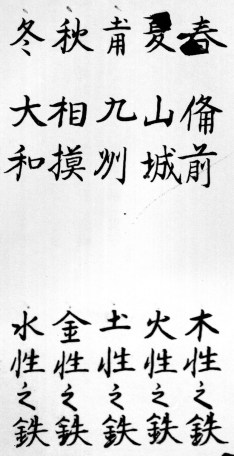 春 備前 木性之鉄
夏 山城 火性之鉄
土用 九州 土性之鉄
秋 相摸 金性之鉄
冬 大和 水性之鉄